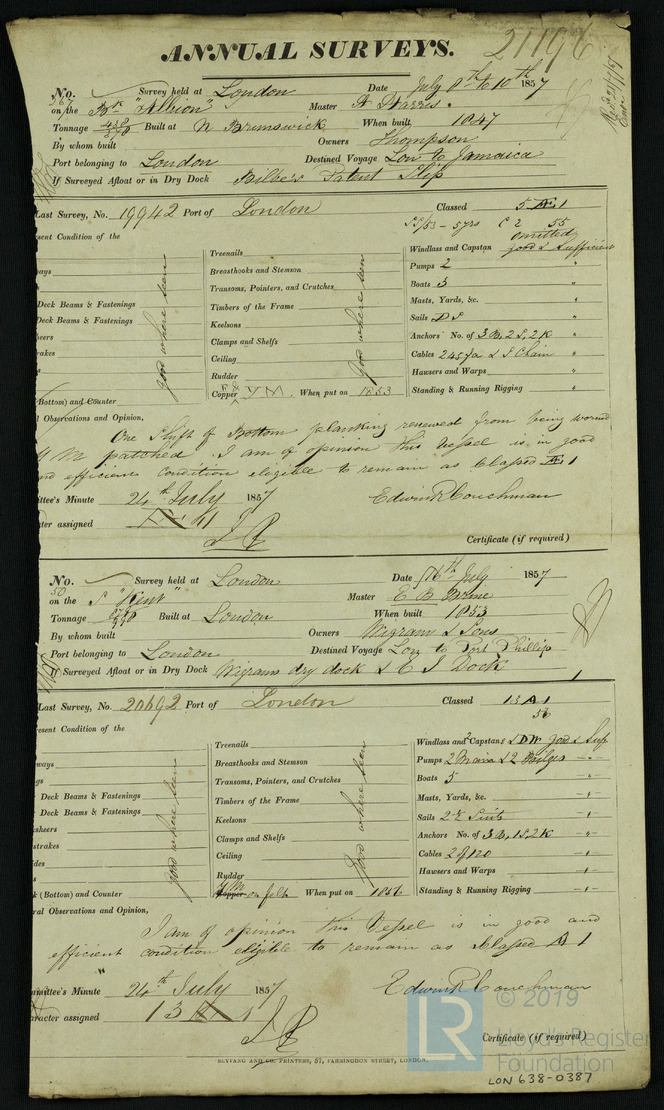 21196
ANNUAL SURVEYS.
No. 267 Survey held at London Date July 8th to 10th 1857
on the Bk "Albion" Master A Harris
Tonnage Built at N Brunswick When built 1847
By whom built Owners Thompson
Port belonging to London Destined Voyage Lon to Jamaica
If Surveyed Afloat or in Dry Dock Bilbes Patent Slip
Last Survey, No. 19942 Port of London Classed 5 Æ 1
SS/53 - 5yrs C 2 55
omitted
esent Condition of the
Windlass and Capstan good & sufficient
ways Treenails Pumps 2 "
Breasthooks and Stemson Boats 3 "
Deck Beams & Fastenings Transoms, Pointers, and Crutches Masts, Yards, &c. "
Deck Beams & Fastenings Timbers of the Frame Sails DS "
heers Keelsons Anchors No. of 3B, 2S, 2K "
rakes Clamps and Shelfs Cables 245 fa & S Chain "
good where seen Ceiling good where seen Hawsers and Warps "
Rudder Standing & Running Rigging "
Bottom) and Counter Copper YM. When put on 1853
l Observations and Opinion,
One Shift of Bottom planking renewed from being wormed
Y M patched. I am of opinion this Vessel is in good
and efficient condition eligible to remain as Classed Æ 1
ittee's Minute 24th July 1857 Edwin R Couchman
ter assigned Æ 1
Certificate (if required)
No. 50 Survey held at London Date 16th July 1857
on the S "Kent" Master E B Brine
Tonnage Built at London When built 1853
By whom built Owners Wigrams & Sons
Port belonging to London Destined Voyage Lon to Port Phillip
If Surveyed Afloat or in Dry Dock Wigrams dry dock & E I Dock
Last Survey, No. 20692 Port of London Classed 13 A 1
56
resent Condition of the
Treenails Windlass and 2 Capstans & DW good & Suff
ways Breasthooks and Stemson Pumps 2 Main & 2 Bilges
Transoms, Pointers, and Crutches Boats 5
Deck Beams & Fastenings Timbers of the Frame Masts, Yards, &c.
Deck Beams & Fastenings Keelsons Sails 2 Suits
ksheers Clamps and Shelfs Anchors No. of 3B, 1S, 2K
strakes Ceiling Cables 2 of 120
ides good where seen Rudder good where seen Hawsers and Warps
k (Bottom) and Counter Copper YM on felt When put on 1856 Standing & Running Rigging
ral Observations and Opinion,
I am of opinion this Vessel is in good and
efficient condition eligible to remain as Classed A 1
mmittee's Minute 24th July 1857 Edwin R Couchman
aracter assigned 13 A 1
Certificate (if required)
BLYFANG AND CO. PRINTERS, 57, FARRINGDON STREET, LONDON.
LR © 2019
Lloyd's Register
Foundation
LON 638-0387